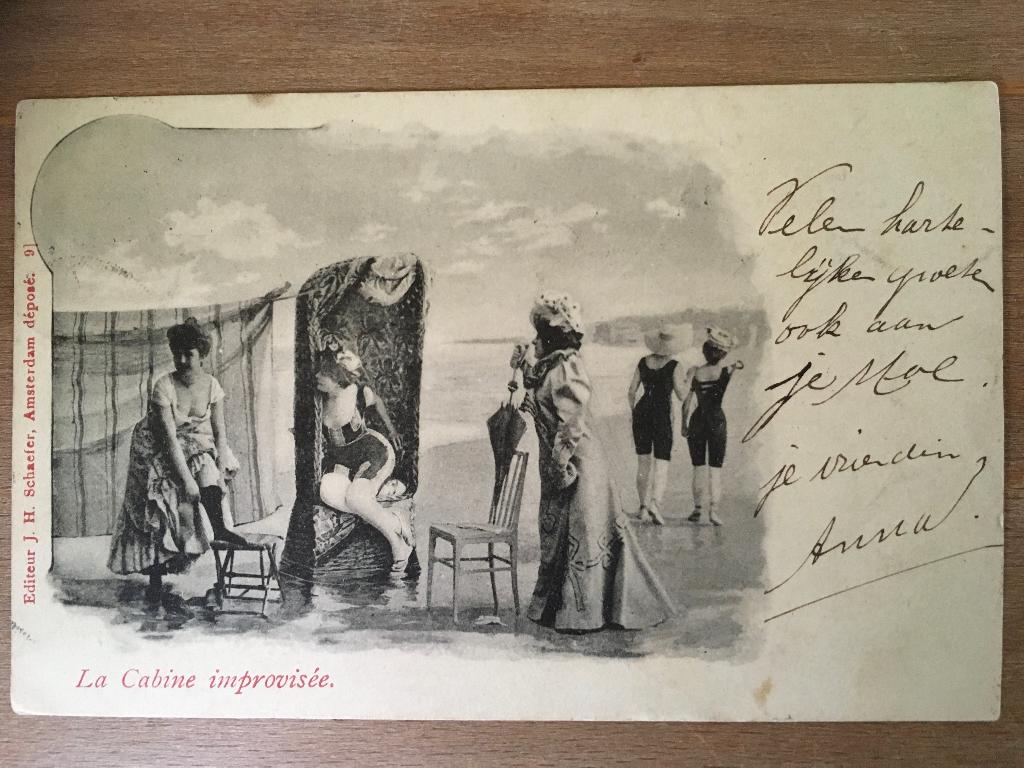 Editeur J. H. Schaefer, Amsterdam déposé. 9
Velen harte-
lijke groete
ook aan
je Moe.
je vriendin
Anna.
La Cabine improvisée.